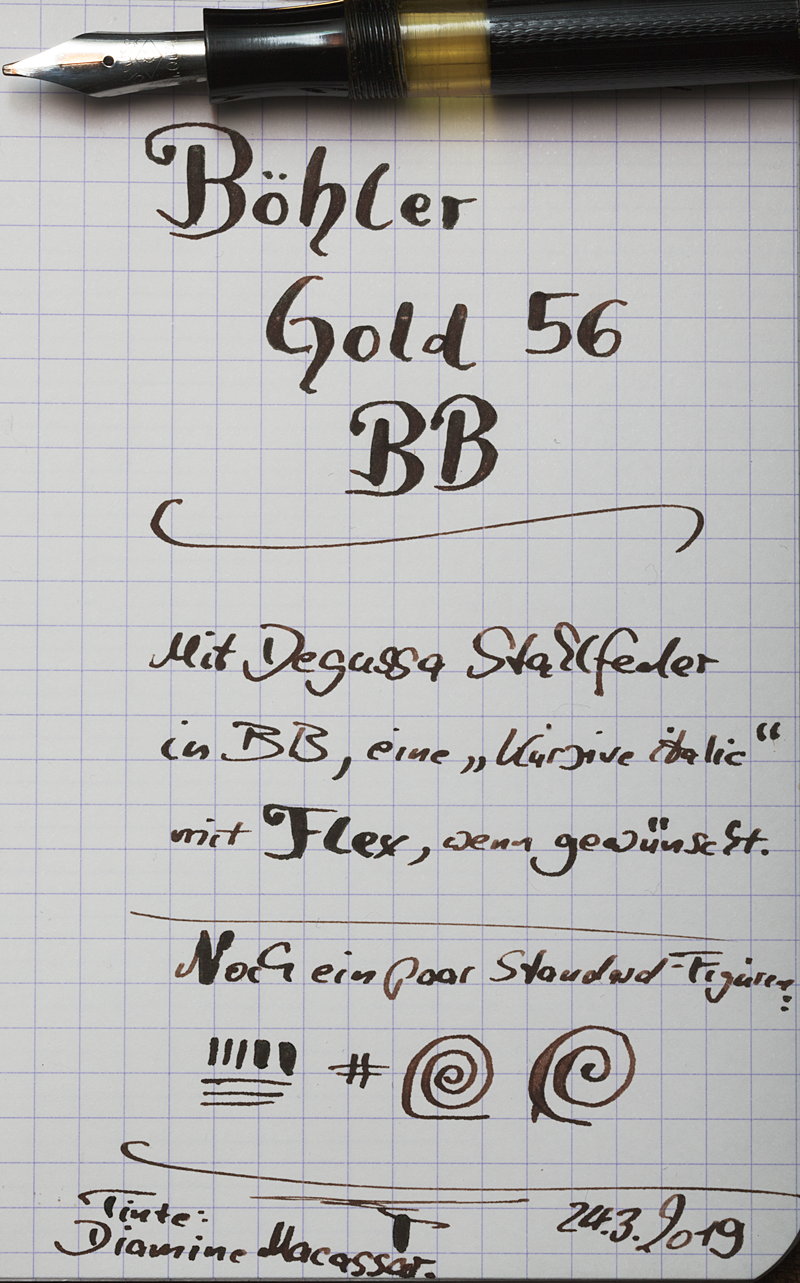 Böhler
Gold 56
BB
Mit Degussa Stahlfeder
in BB, eine „Kursive italic“
mit Flex, wenn gewünscht.
Noch ein paar Standard-Figuren:
#
Tinte:
Diamine Macassar.
24.3.2019